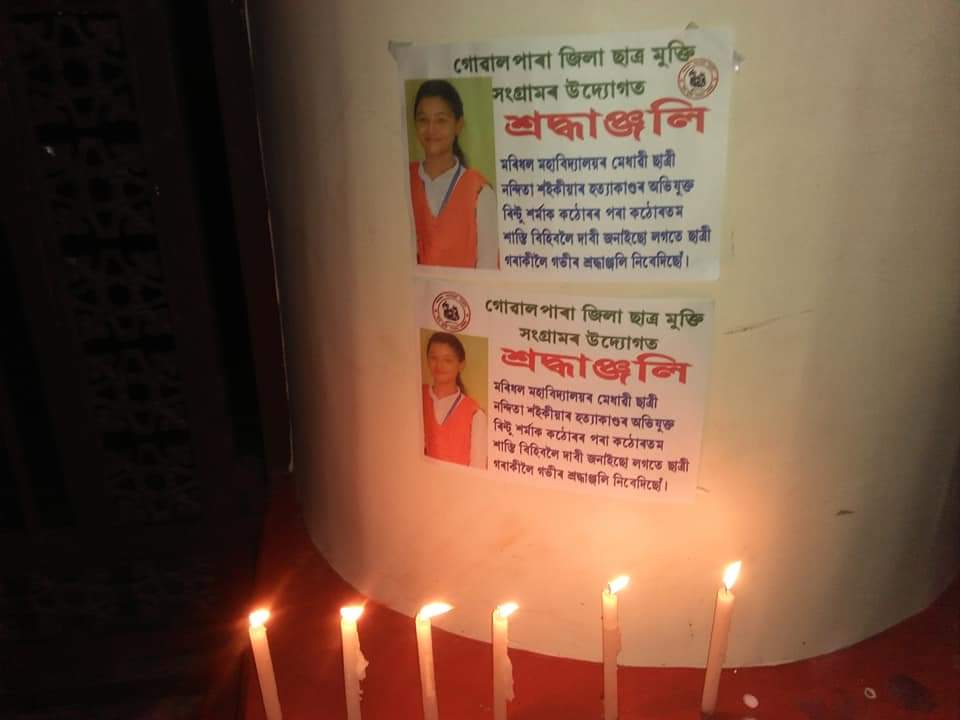 গোৱালপাৰা জিলা ছাত্ৰ মুক্তি
সংগ্ৰামৰ উদ্যোগত
শ্ৰদ্ধাঞ্জলি
মৰিধল মহাবিদ্যালয়ৰ মেধাৱী ছাত্ৰী
নন্দিতা শইকীয়াৰ হত্যাকাণ্ডৰ অভিযুক্ত
ৰিন্টু শৰ্মাক কঠোৰৰ পৰা কঠোৰতম
শাস্তি বিহিবলৈ দাবী জনাইছো লগতে ছাত্ৰী
গৰাকীলৈ গভীৰ শ্ৰদ্ধাঞ্জলি নিবেদিছোঁ।
গোৱালপাৰা জিলা ছাত্ৰ মুক্তি
সংগ্ৰামৰ উদ্যোগত
শ্ৰদ্ধাঞ্জলি
মৰিধল মহাবিদ্যালয়ৰ মেধাৱী ছাত্ৰী
নন্দিতা শইকীয়াৰ হত্যাকাণ্ডৰ অভিযুক্ত
ৰিন্টু শৰ্মাক কঠোৰৰ পৰা কঠোৰতম
শাস্তি বিহিবলৈ দাবী জনাইছো লগতে ছাত্ৰী
গৰাকীলৈ গভীৰ শ্ৰদ্ধাঞ্জলি নিবেদিছোঁ।